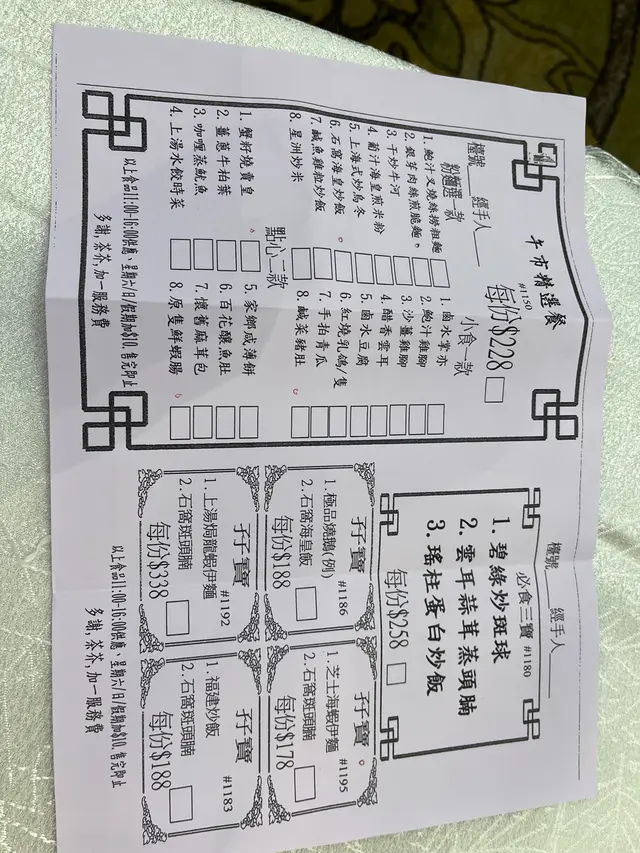 檯號____經手人____
午市精選餐
#1150
每份$228
粉麵選一款
1. 鮑汁叉燒絲撈粗麵
2. 銀芽肉絲煎脆麵
3. 干炒牛河
4. 葡汁海皇煎米粉
5. 上海式炒烏冬
6. 石窩海皇炒飯
7. 鹹魚雞粒炒飯
8. 星洲炒米
小食一款
1. 鹵水掌亦
2. 鮑汁雞腳
3. 沙薑雞腳
4. 醋香雲耳
5. 鹵水豆腐
6. 紅燒乳鴿/隻
7. 手拍青瓜
8. 鹹菜豬肚
點心二款
1. 蟹籽燒賣皇
2. 薑蔥牛柏葉
3. 咖喱蒸魷魚
4. 上湯水餃時菜
5. 家鄉咸薄餅
6. 百花釀魚肚
7. 懷舊麻茸包
8. 原隻鮮蝦腸
以上食品11:00-16:00供應, 星期六/日/假期加$10, 售完即止
多謝, 茶芥, 加一服務費
檯號____經手人____
必食三寶 #1180
1. 碧綠炒斑球
2. 雲耳蒜茸蒸頭腩
3. 瑤柱蛋白炒飯
每份$258
孖寶 #1186
1. 極品燒鵝(例)
2. 石窩海皇飯
每份$188
孖寶 #1195
1. 芝士海蝦伊麵
2. 石窩斑頭腩
每份$178
孖寶 #1192
1. 上湯焗龍蝦伊麵
2. 石窩斑頭腩
每份$338
孖寶 #1183
1. 福建炒飯
2. 石窩斑頭腩
每份$188
以上食品11:00-16:00供應, 星期六/日/假期加$10, 售完即止
多謝, 茶芥, 加一服務費